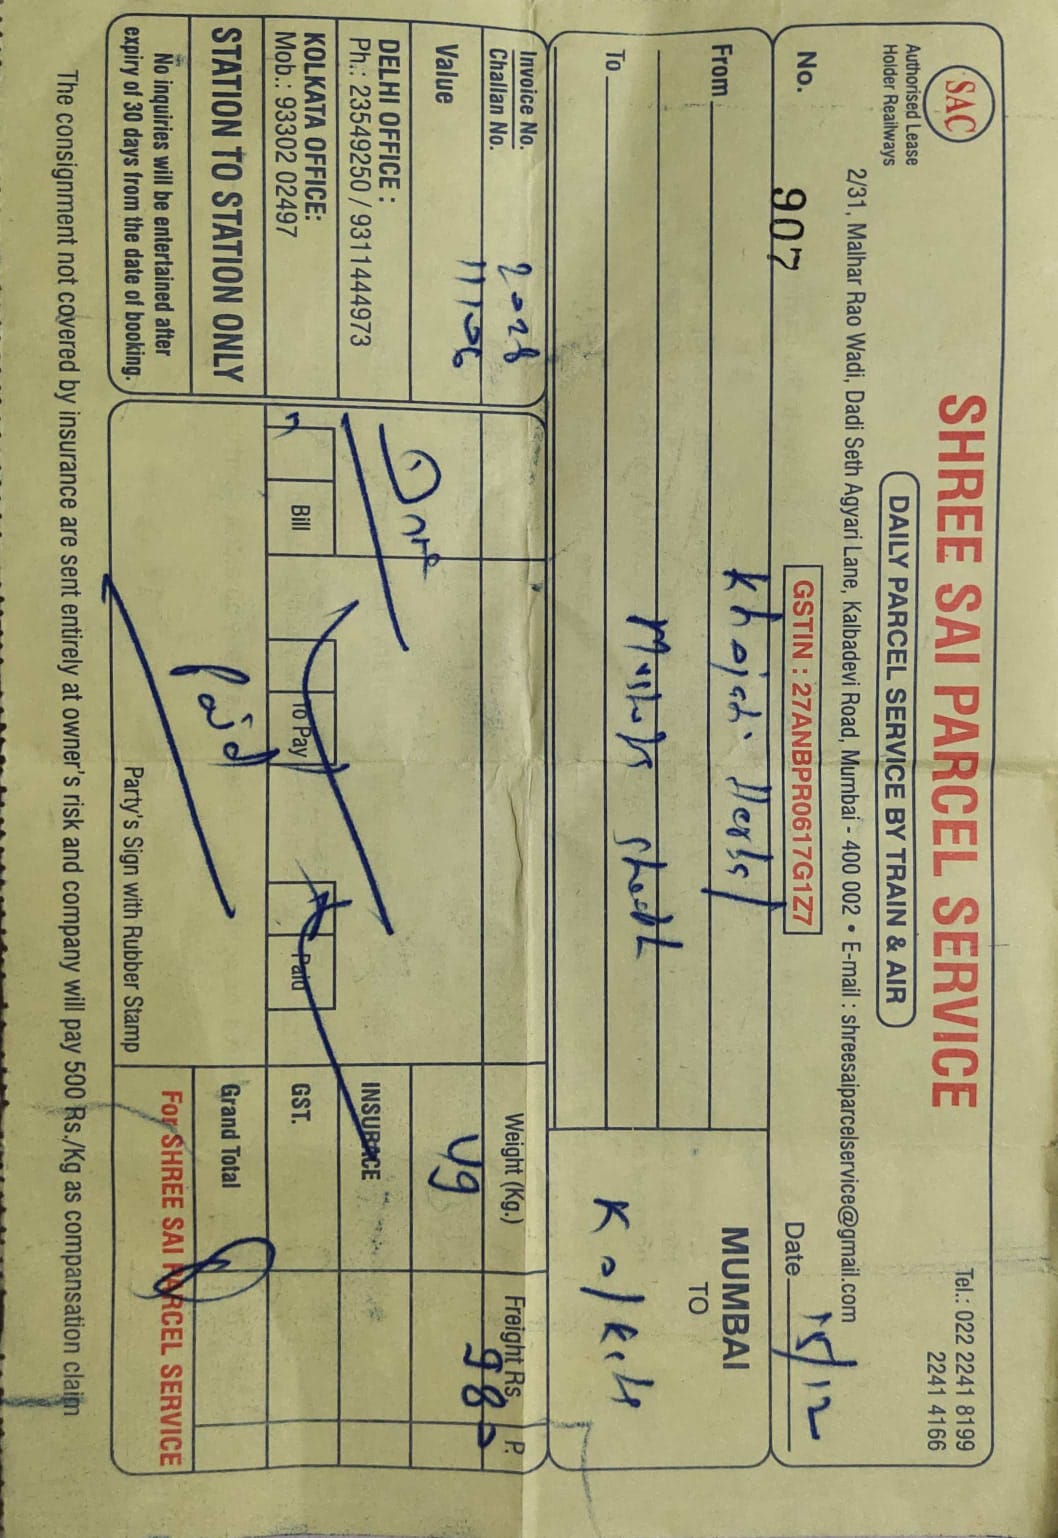 SAC
Authorised Lease
Holder Reailways
SHREE SAI PARCEL SERVICE
DAILY PARCEL SERVICE BY TRAIN & AIR
Tel.: 022 2241 8199
2241 4166
2/31, Malhar Rao Wadi, Dadi Seth Agyari Lane, Kalbadevi Road, Mumbai - 400 002 • E-mail : shreesaiparcelservice@gmail.com
No. 907
GSTIN : 27ANBPR0617G1Z7
Date 15/12
From Khajati Herbal
To
MUMBAI
TO
Kolkata
Invoice No.
Challan No.
2028
Weight (Kg.)
Freight Rs. P.
Value 11106
49
980
DELHI OFFICE :
Ph.: 23549250 / 9311444973
One
INSURACE
KOLKATA OFFICE:
Mob.: 93302 02497
Bill
To Pay
Paid
GST.
STATION TO STATION ONLY
Paid
Grand Total
No inquiries will be entertained after
expiry of 30 days from the date of booking.
Party's Sign with Rubber Stamp
For SHREE SAI PARCEL SERVICE
The consignment not covered by insurance are sent entirely at owner's risk and company will pay 500 Rs./Kg as compansation claim